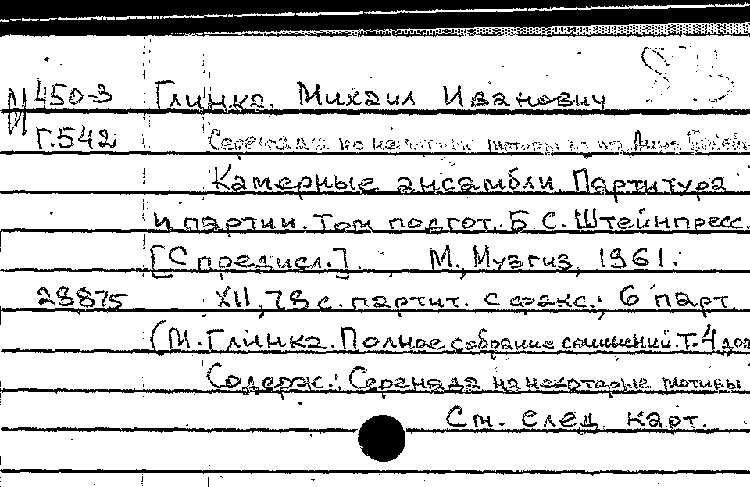 И 450-3 Глинка. Михаил Иванович
Г.542 Серенада на некоторые мотивы из оп. Анна
Камерные ансамбли. Партитура
и партии. Том подгот. Б С. Штейнпресс.
[С предисл.] М., Музгиз, 1961.
28875 XII, 78 с. партит. с факс.; 6 парт
(М. Глинка. Полное собрание сочинений. Т.4 доп
Содерж.: Серенада на некоторые мотивы
См. след карт.